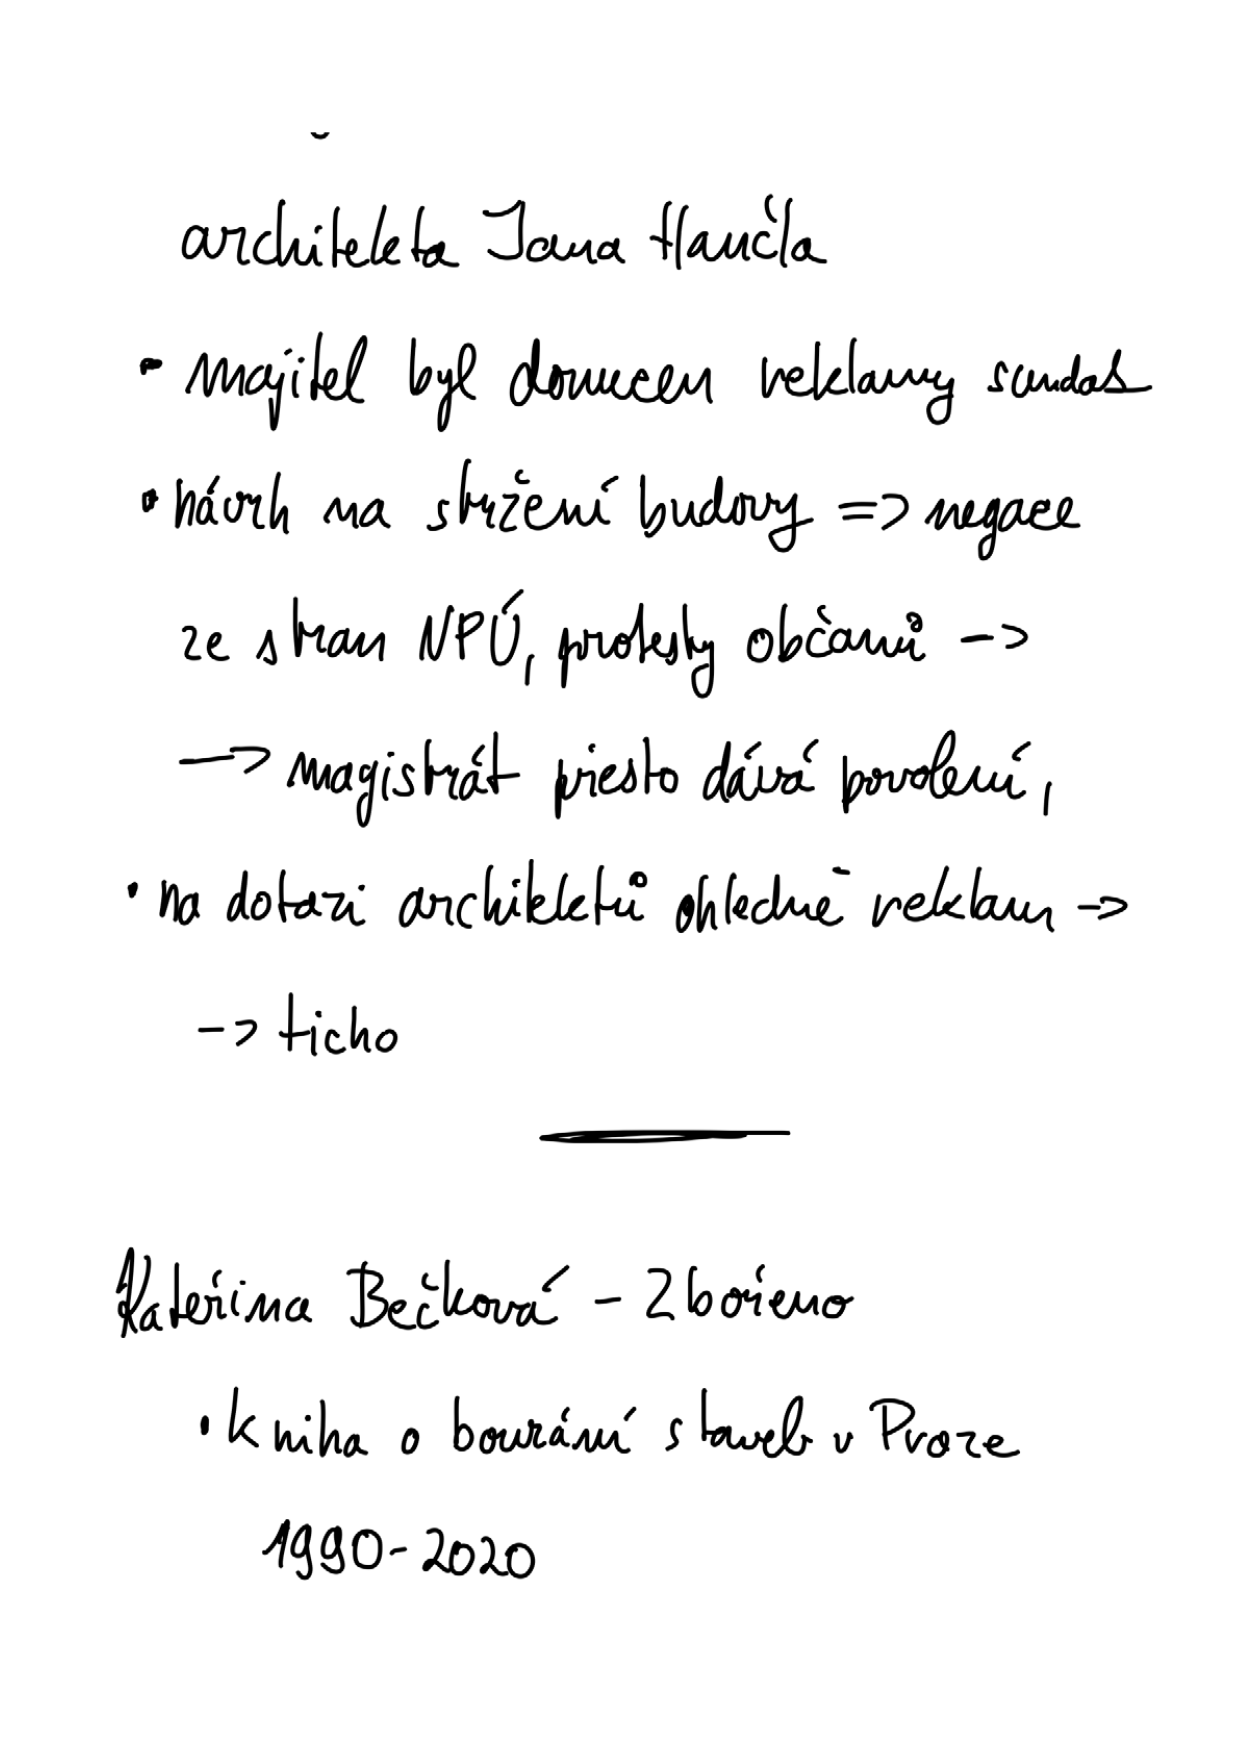 architekta Jana Hančla
• majitel byl donucen reklamy sundat
• návrh na stržení budovy => negace
ze stran NPÚ, protesty občanů ->
-> magistrát přesto dává povolení,
• na dotazi architektů ohledně reklam ->
-> ticho
Kateřina Bečková - Zbořeno
• kniha o bourání staveb v Praze
1990-2020